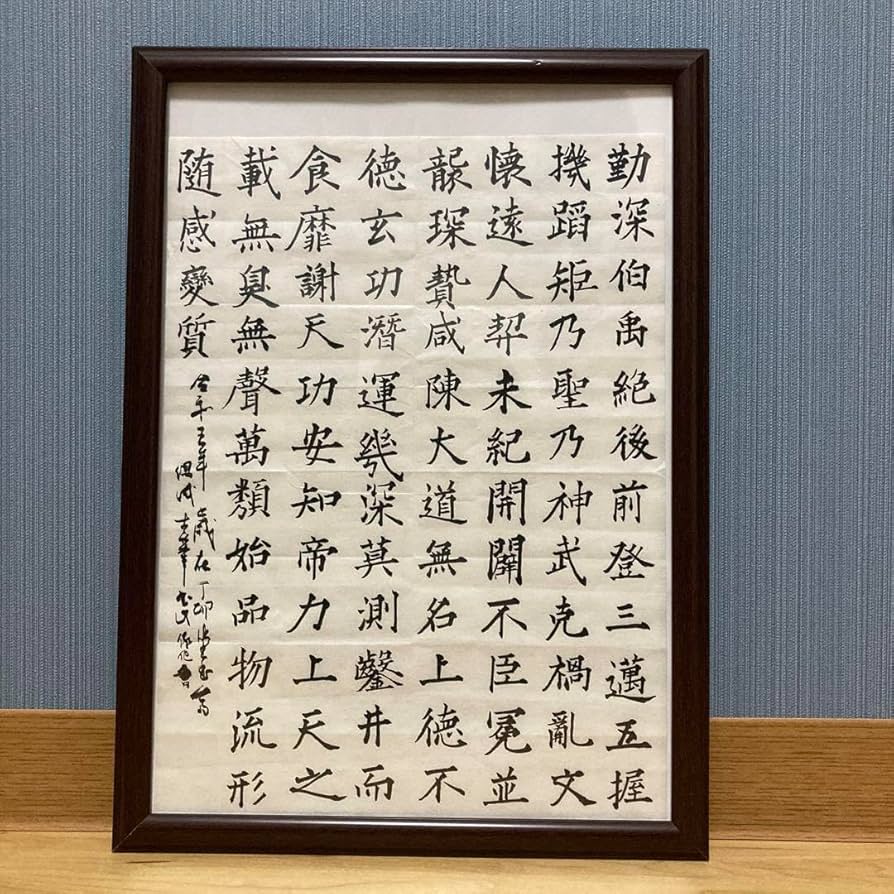 勤深伯禹絶後前登三邁五握
機蹈矩乃聖乃神武克禍亂文
懷遠人契未紀開闢不臣冕並
襲琛贄咸陳大道無名上德不
德玄功潛運幾深莫測鑿井而
食靡謝天功安知帝力上天之
載無臭無聲萬類始品物流形
随感變質
年歳在丁卯